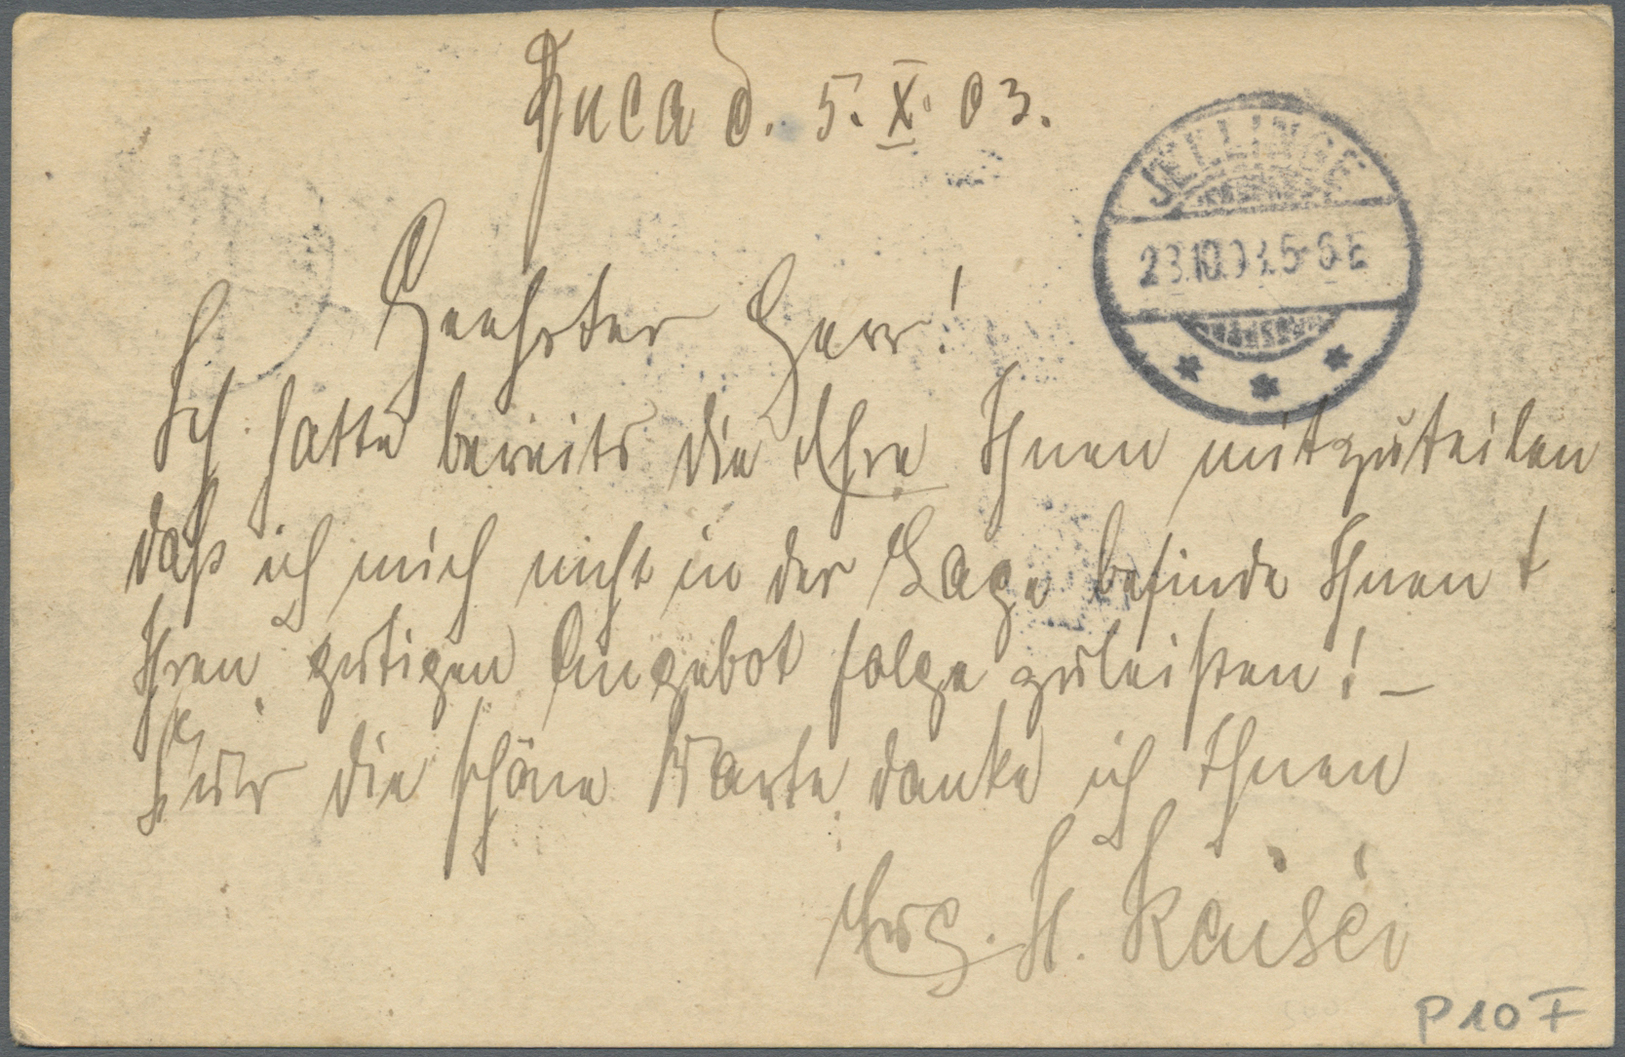 Puca d. 5. X. 03.
JELLINGE
23.10.03. 5-6 E
Geehrter Herr!
Ich hatte bereits die Ehre Ihnen mitzuteilen
daß ich mich nicht in der Lage befinde Ihnen
Ihren gutigen Angebot folge zuleisten! –
Für die schöne Karte danke ich Ihnen
Erg. H. Kaiser
P 10 F